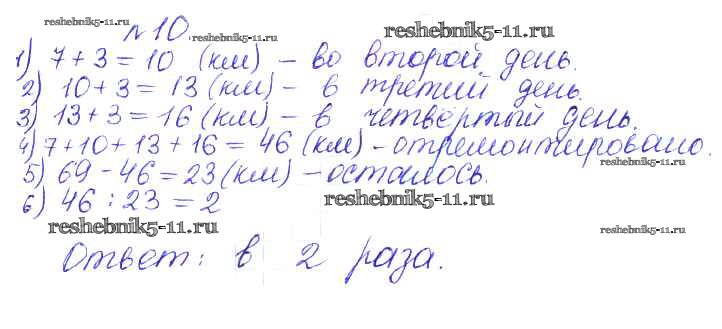 reshebnik5-11.ru
№10. reshebnik5-11.ru reshebnik5-11.ru
1) 7+3=10 (км) – во второй день.
2) 10+3=13 (км) – в третий день.
3) 13+3=16 (км) – в четвёртый день.
4) 7+10+13+16=46 (км) – отремонтировано.
reshebnik5-11.ru
5) 69-46=23 (км) – осталось.
6) 46:23=2 reshebnik5-11.ru
reshebnik5-11.ru reshebnik5-11.ru
Ответ: в 2 раза.